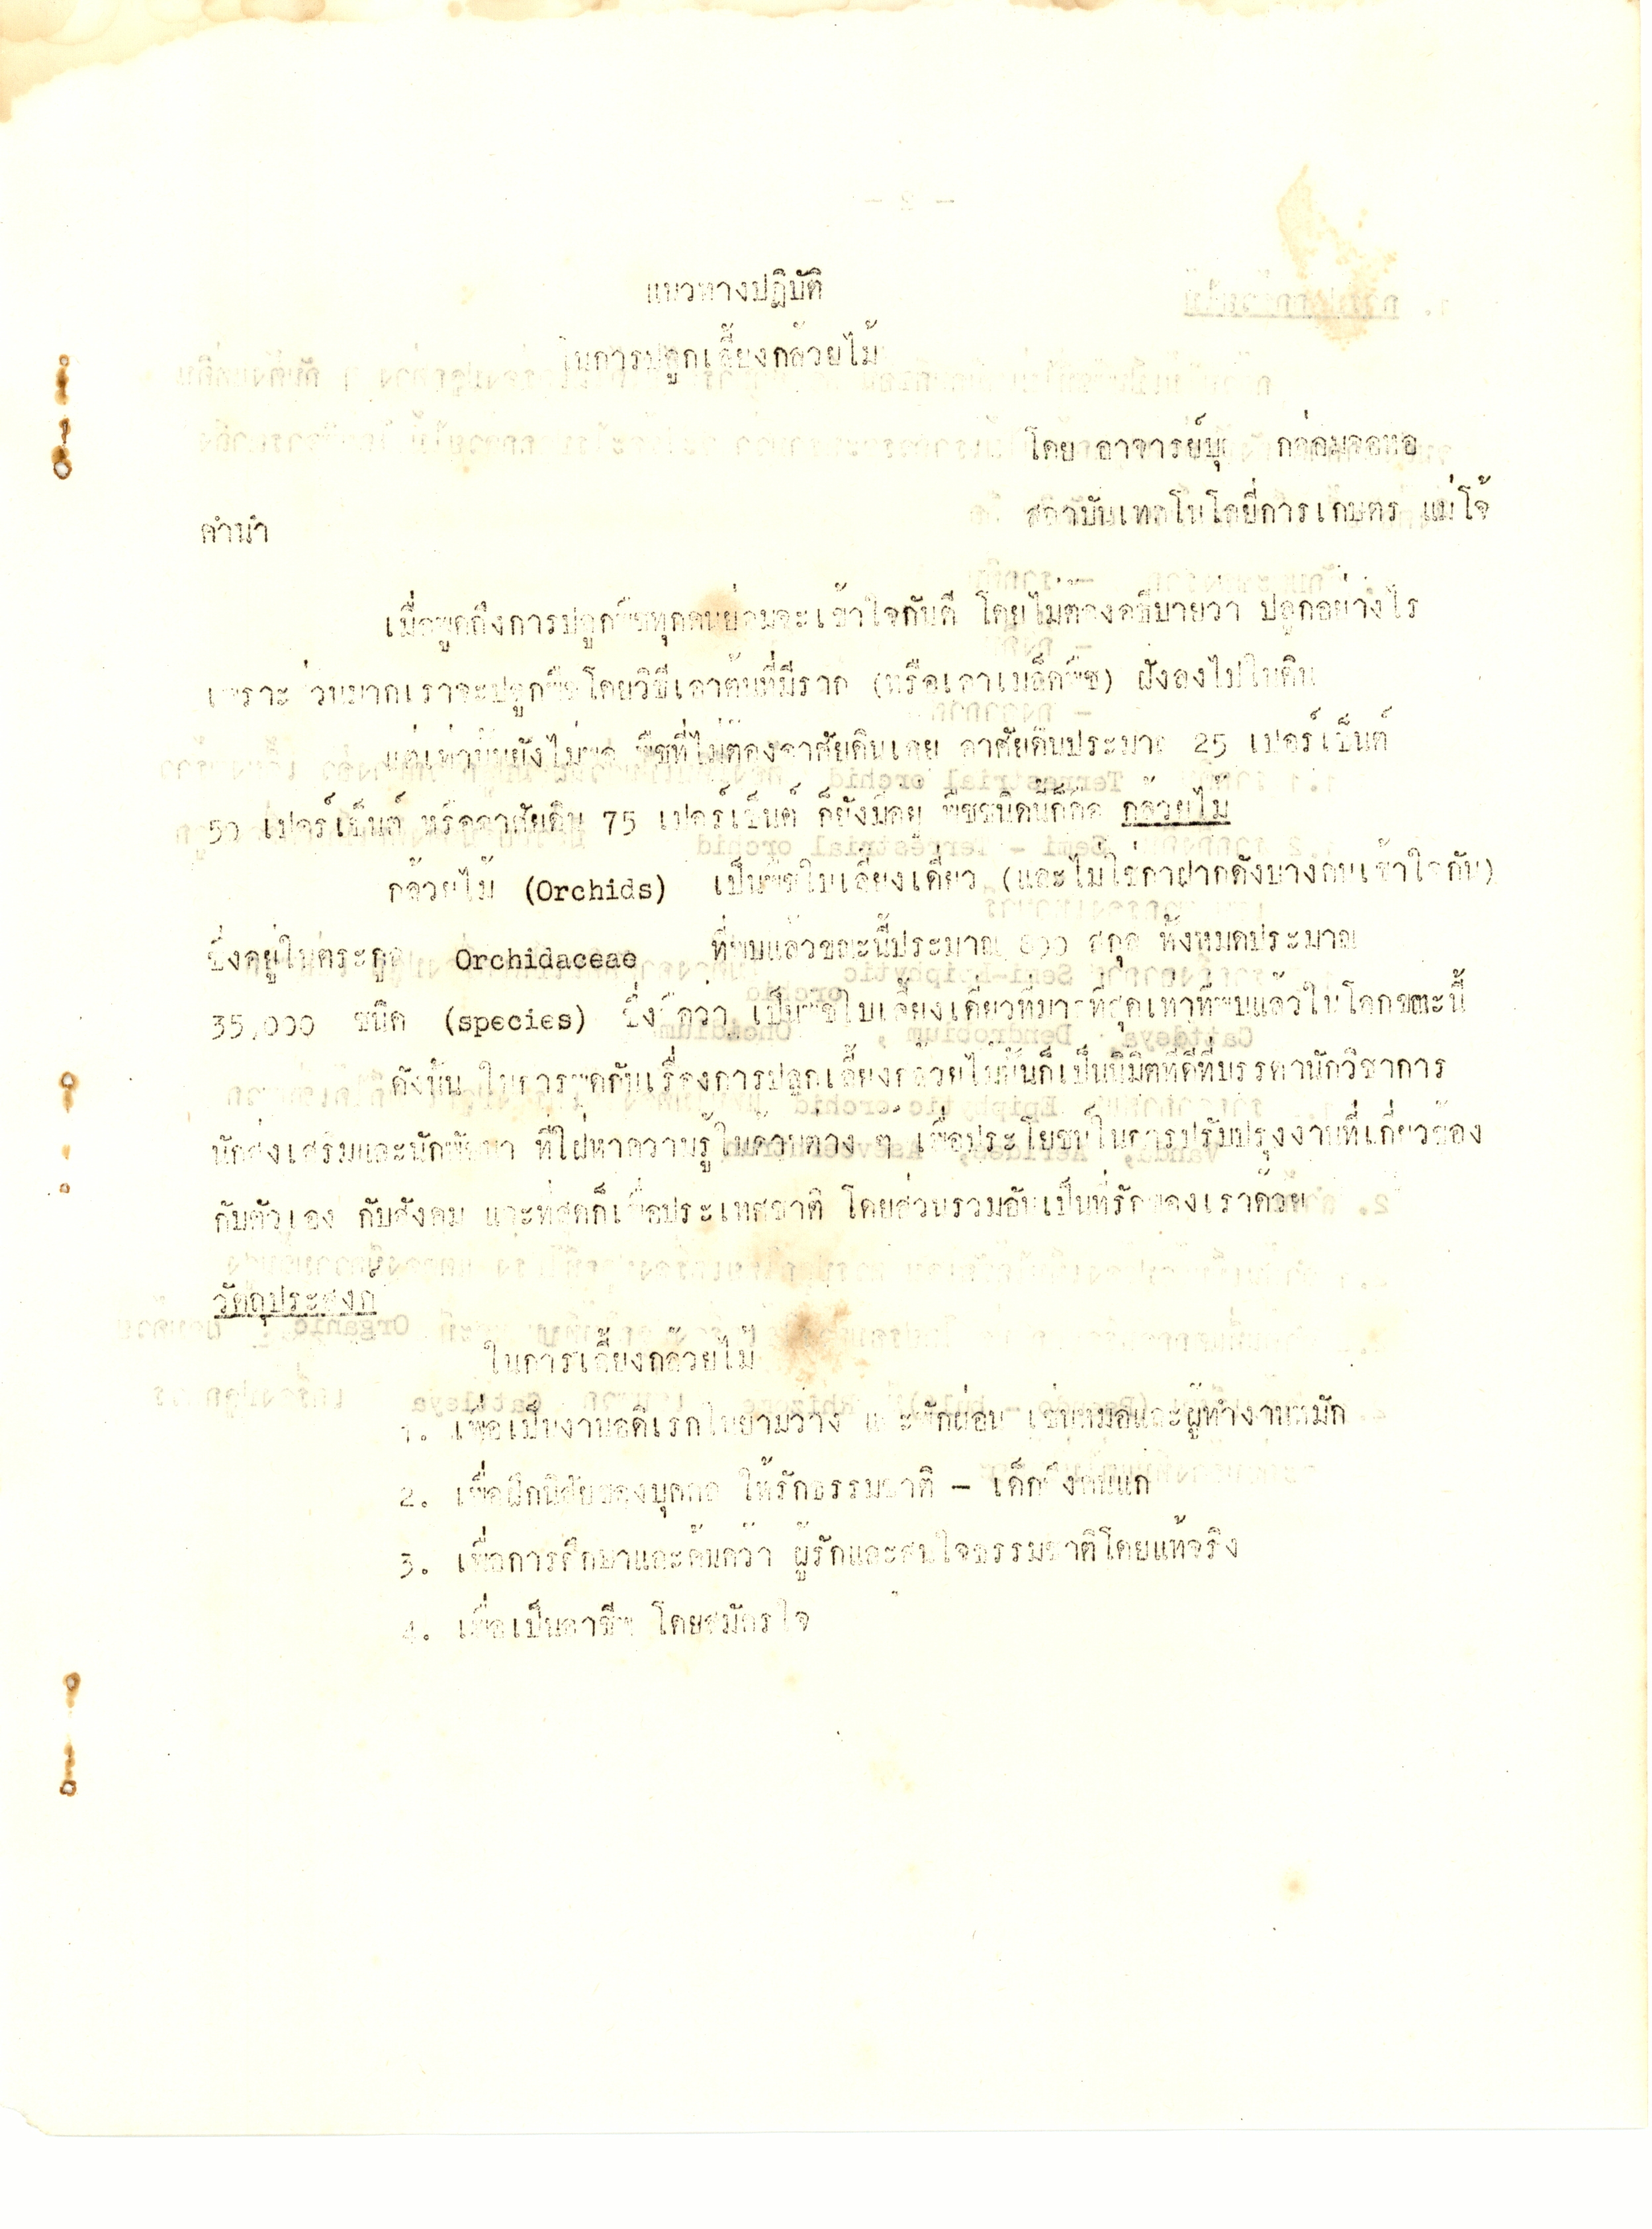 แนวทางปฏิบัติ
ในการปลูกเลี้ยงกล้วยไม้
โดย อาจารย์ กล่อมจอหอ
สถาบันเทคโนโลยีการเกษตร แม่โจ้
คำนำ
เมื่อพูดถึงการปลูกพืชทุกคนย่อมจะเข้าใจกันดี โดยไม่ต้องอธิบายว่า ปลูกอย่างไร
เพราะส่วนมากเราจะปลูกพืชโดยวิธีเอาต้นที่มีราก (หรือเอาเมล็ดพืช) ฝังลงไปในดิน
แต่เท่านั้นยังไม่พอ พืชที่ไม่ต้องอาศัยดินเลย อาศัยดินประมาณ 25 เปอร์เซ็นต์
50 เปอร์เซ็นต์ หรืออาศัยดิน 75 เปอร์เซ็นต์ ก็ยังมีอยู่ พืชชนิดนี้ก็คือ กล้วยไม้
กล้วยไม้ (Orchids) เป็นพืชใบเลี้ยงเดี่ยว (และไม่ใช่กาฝากดังบางคนเข้าใจกัน)
ซึ่งอยู่ในตระกูล Orchidaceae ที่พบแล้วขณะนี้ประมาณ 800 สกุล ทั้งหมดประมาณ
35,000 ชนิด (species) ซึ่งถือว่า เป็นพืชใบเลี้ยงเดี่ยวที่มากที่สุดเท่าที่พบแล้วในโลกขณะนี้
ดังนั้น ในการพูดกันเรื่องการปลูกเลี้ยงกล้วยไม้นั้นก็เป็นนิมิตที่ดีที่บรรดานักวิชาการ
นักส่งเสริมและนักพัฒนา ที่ใฝ่หาความรู้ในด้านต่าง ๆ เพื่อประโยชน์ในการปรับปรุงงานที่เกี่ยวข้อง
กับตัวเอง กับสังคม และที่สุดก็เพื่อประเทศชาติ โดยส่วนรวมอันเป็นที่รักของเราด้วย
วัตถุประสงค์
ในการเลี้ยงกล้วยไม้
1. เพื่อเป็นงานอดิเรกในยามว่าง และพักผ่อน เช่นหมอและผู้ทำงานหนัก
2. เพื่อฝึกนิสัยของบุคคล ให้รักธรรมชาติ - เด็กถึงคนแก่
3. เพื่อการศึกษาและค้นคว้า ผู้รักและสนใจธรรมชาติโดยแท้จริง
4. เพื่อเป็นอาชีพ โดยสมัครใจ